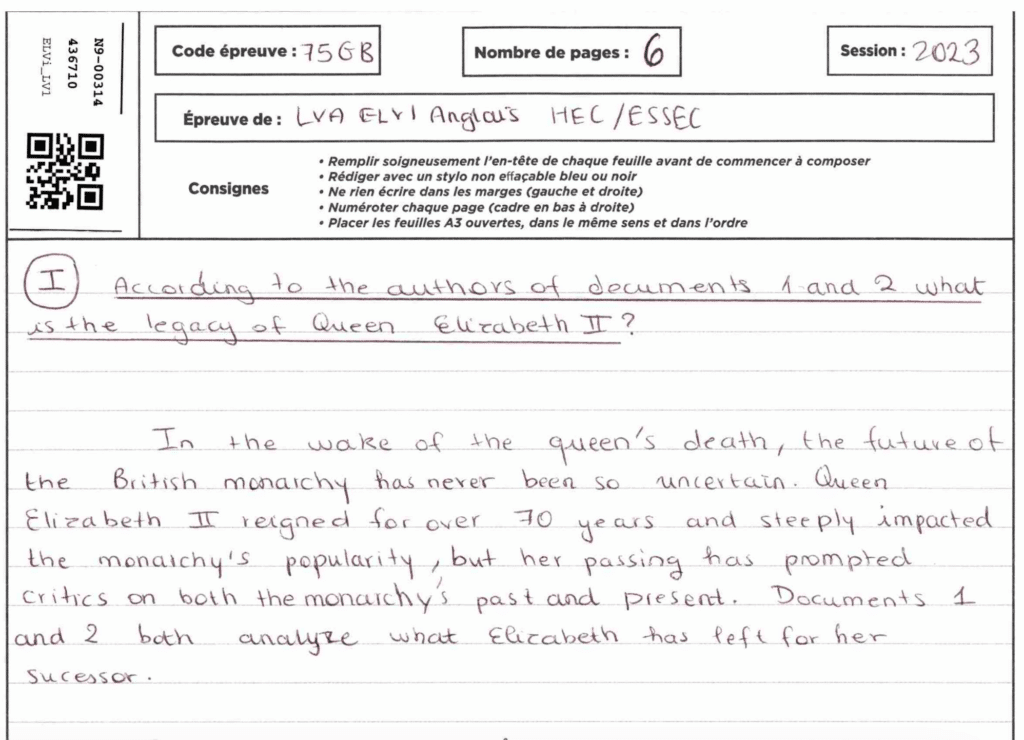 N9-00314
436710
ELVi_LV1
Code épreuve : 75GB
Nombre de pages : 6
Session : 2023
Épreuve de : LVA ELVI Anglais HEC/ESSEC
Consignes
• Remplir soigneusement l'en-tête de chaque feuille avant de commencer à composer
• Rédiger avec un stylo non effaçable bleu ou noir
• Ne rien écrire dans les marges (gauche et droite)
• Numéroter chaque page (cadre en bas à droite)
• Placer les feuilles A3 ouvertes, dans le même sens et dans l'ordre
I According to the authors of documents 1 and 2 what
is the legacy of Queen Elizabeth II ?
In the wake of the queen's death, the future of
the British monarchy has never been so uncertain. Queen
Elizabeth II reigned for over 70 years and steeply impacted
the monarchy's popularity, but her passing has prompted
critics on both the monarchy's past and present. Documents 1
and 2 both analyze what Elizabeth has left for her
sucessor.